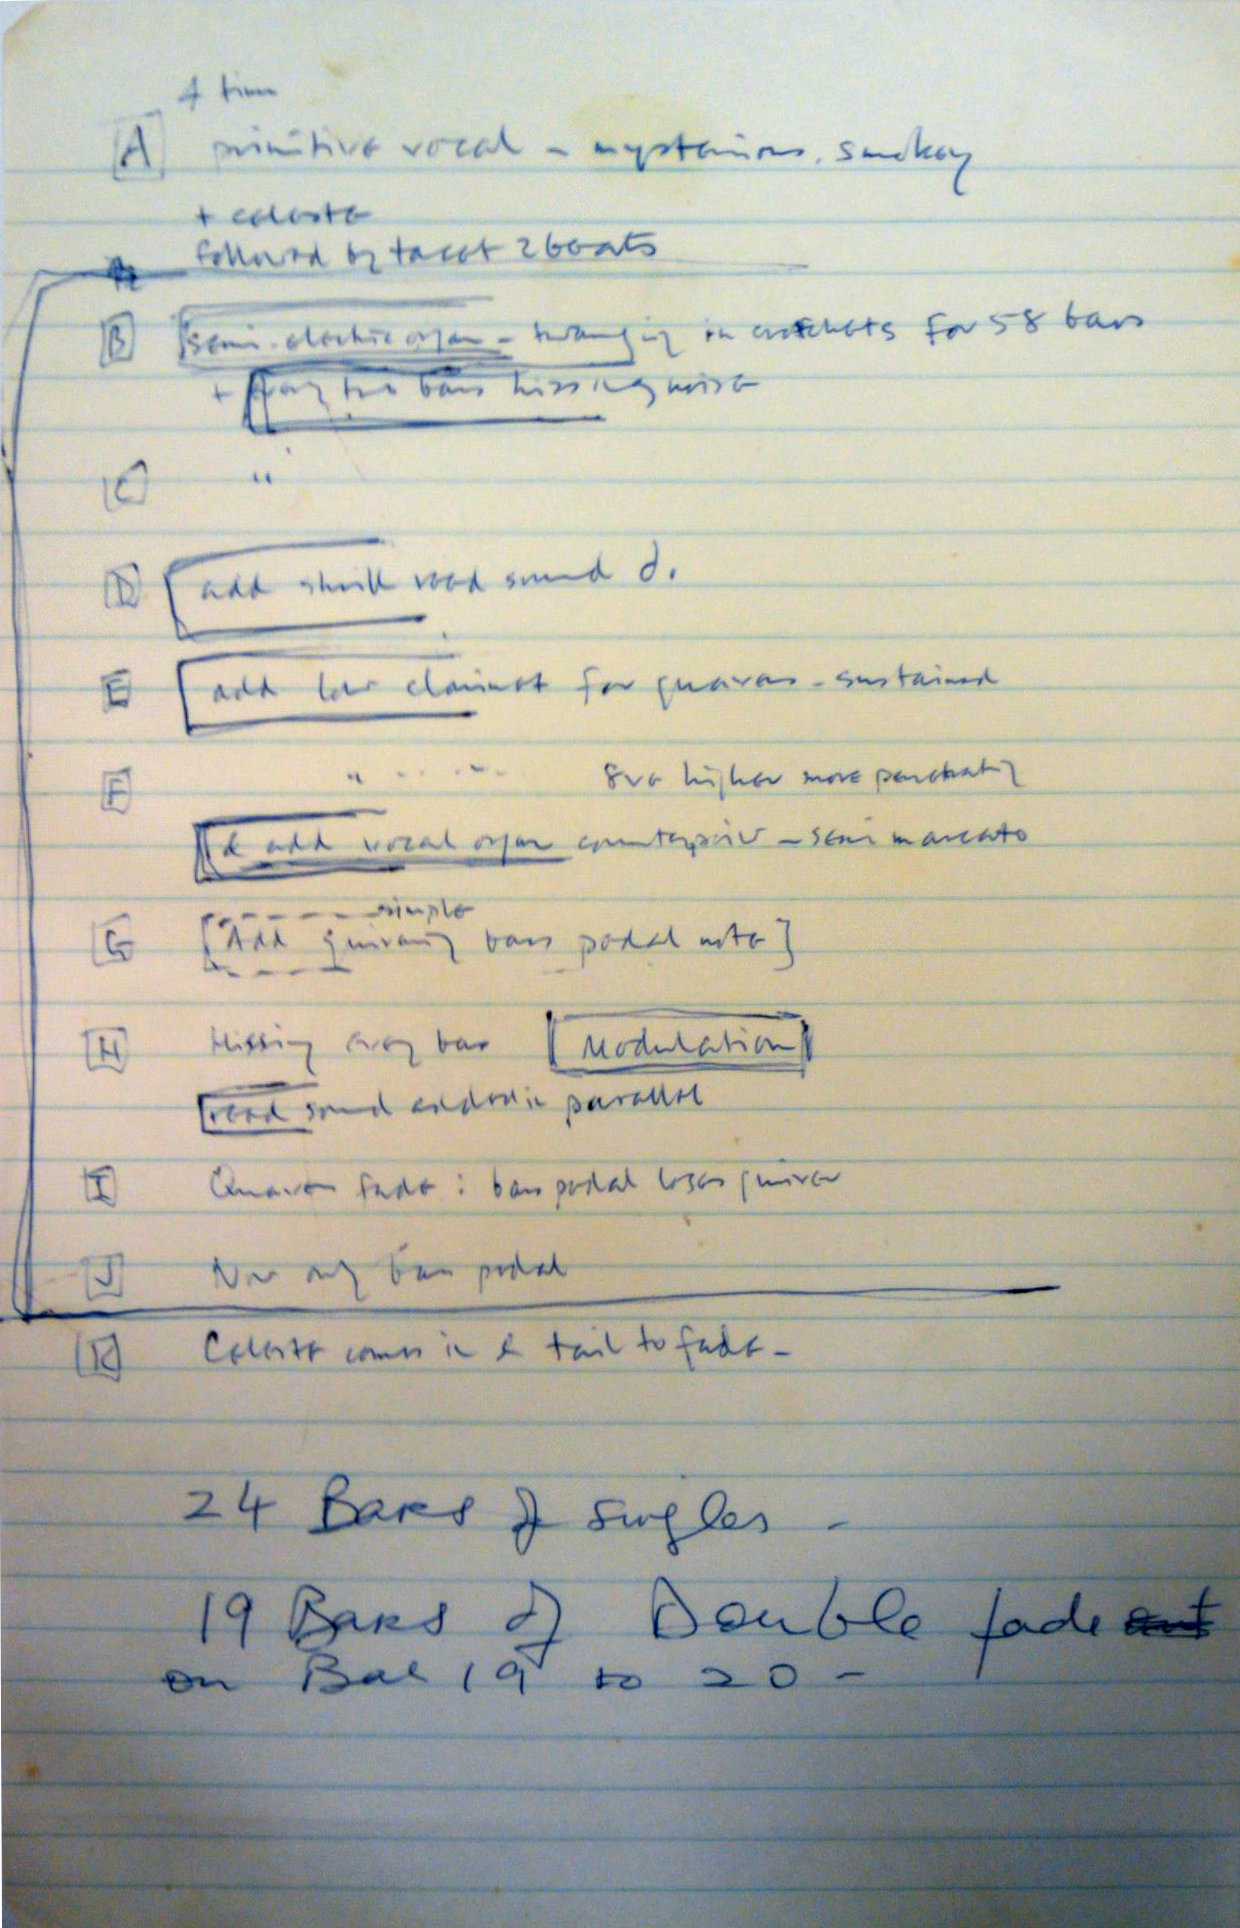 4 time
A primitive vocal - mysterious, smokey
+ celeste
followed by tacet 2 beats
B semi-electric organ - twanging in crotchets for 58 bars
+ every two bars hissing noise
C "
D add shrill reed sound
E add low clarinet for quavers - sustained
F " " " 8ve higher more penetrating
& add vocal organ counterpoint - semi marcato
simple
G [Add quivering bass pedal note]
H Hissing every bar Modulation
reed sound added in parallel
I Quavers fade : bass pedal loses quiver
J Now only bass pedal
K Celeste comes in & tail to fade -
24 Bars of singles -
19 Bars of Double fade out
on Bar 19 to 20 -